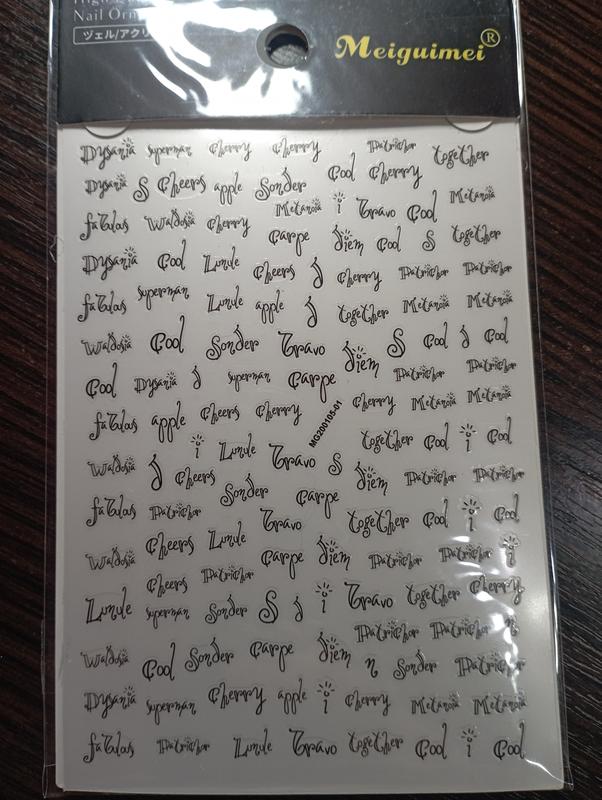 Nail Orn
ヅェル/アクリ
Meiguimei®
Dysania superman Cherry Cherry Patrichor together
Dysania S Cheers apple Sonder Cool Cherry
fabulous Waldosia Cherry Metanoia i Bravo Cool Metanoia
Dysania Cool Lunule Carpe diem Cool S together
Cheers d Cherry Patrichor Patrichor
fabulous superman Lunule apple d together Metanoia Metanoia
Waldosia Cool Sonder Bravo diem S Cool d Cool
Cool Dysania d superman Carpe Patrichor Patrichor
fabulous apple Cheers Cherry Cherry Metanoia Metanoia
MG200105-01
i Lunule Bravo S together Cool i Cool
Waldosia d Cheers diem Patrichor Patrichor
fabulous Patrichor Sonder Carpe
Bravo together Cool i Cool
Waldosia Cheers Lunule Carpe diem Patrichor Patrichor i
Cheers Patrichor
Lunule superman Sonder S d i Bravo together Cherry
Patrichor Patrichor n
Waldosia Cool Sonder Carpe diem n Sonder Patrichor
Dysania superman Cherry apple i Cherry Metanoia Metanoia
fabulous Patrichor Lunule Bravo together Cool i Cool